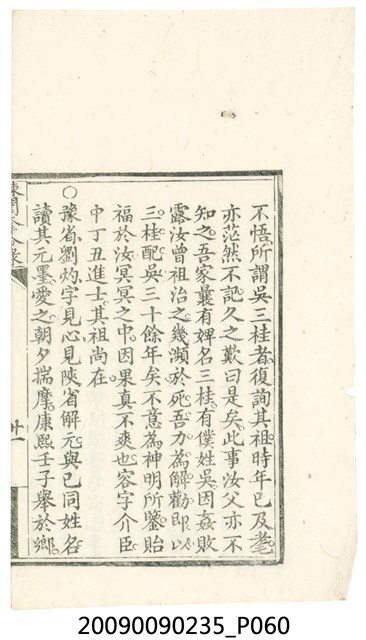 不悟所謂吳三桂者復詢其祖時年已及耄
亦茫然不記久之歎曰是矣此事汝父亦不
知之吾家曩有婢名三桂有僕姓吳因姦敗
露汝曾祖治之幾瀕於死吾力為解勸即以
三桂配吳三十餘年矣不意為神明所鑒貽
福於汝冥冥之中因果真不爽也容字介臣
中丁丑進士其祖尚在
○豫省劉灼字見心見陝省解元與已同姓名
讀其元墨愛之朝夕揣摩康熙壬子舉於鄉
廿一
20090090235_P060